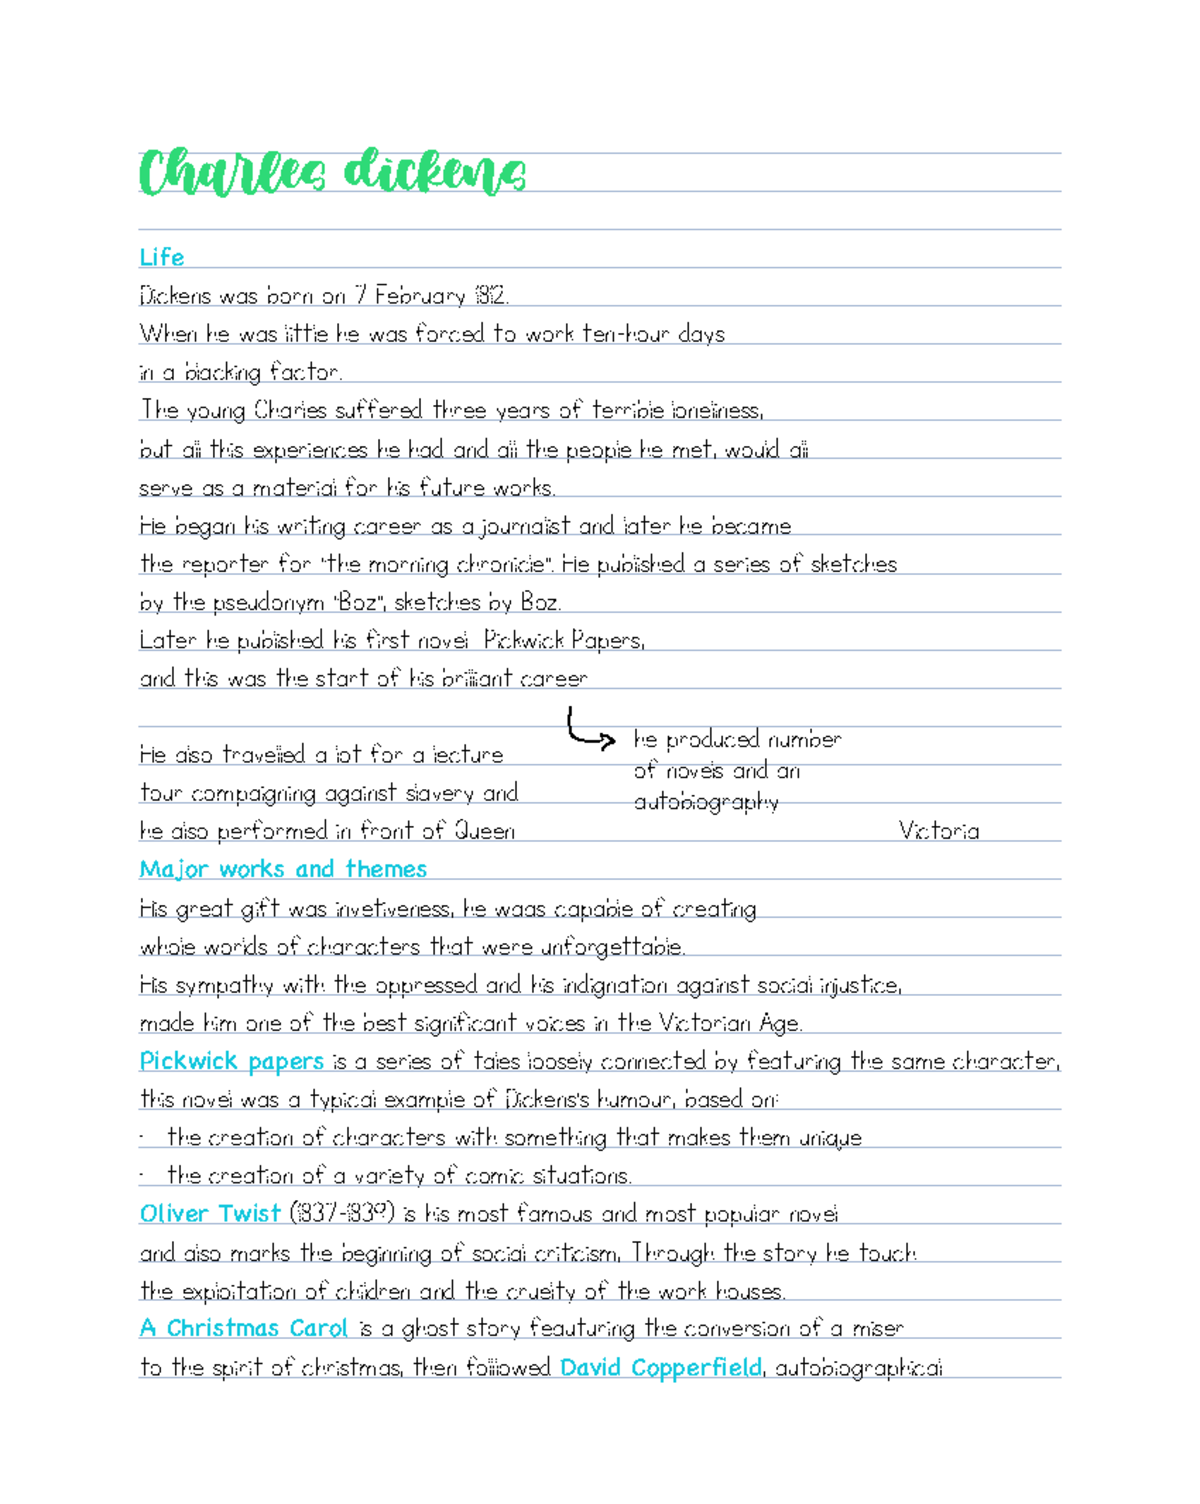 Charles dickens
Life
Dickens was born on 7 February 1812.
When he was little he was forced to work ten-hour days
in a blacking factor.
The young Charles suffered three years of terrible loneliness,
but all this experiences he had and all the people he met, would all
serve as a material for his future works.
He began his writing career as a journalist and later he became
the reporter for "the morning chronicle". He published a series of sketches
by the pseudonym "Boz", sketches by Boz.
Later he published his first novel Pickwick Papers,
and this was the start of his brilliant career
he produced number
of novels and an
autobiography
He also travelled a lot for a lecture
tour compaigning against slavery and
he also performed in front of Queen Victoria
Major works and themes
His great gift was invetiveness, he waas capable of creating
whole worlds of characters that were unforgettable.
His sympathy with the oppressed and his indignation against social injustice,
made him one of the best significant voices in the Victorian Age.
Pickwick papers is a series of tales loosely connected by featuring the same character,
this novel was a typical example of Dickens's humour, based on:
- the creation of characters with something that makes them unique
- the creation of a variety of comic situations.
Oliver Twist (1837-1839) is his most famous and most popular novel
and also marks the beginning of social criticism, Through the story he touch
the exploitation of children and the cruelty of the work houses.
A Christmas Carol is a ghost story feauturing the conversion of a miser
to the spirit of christmas, then followed David Copperfield, autobiographical